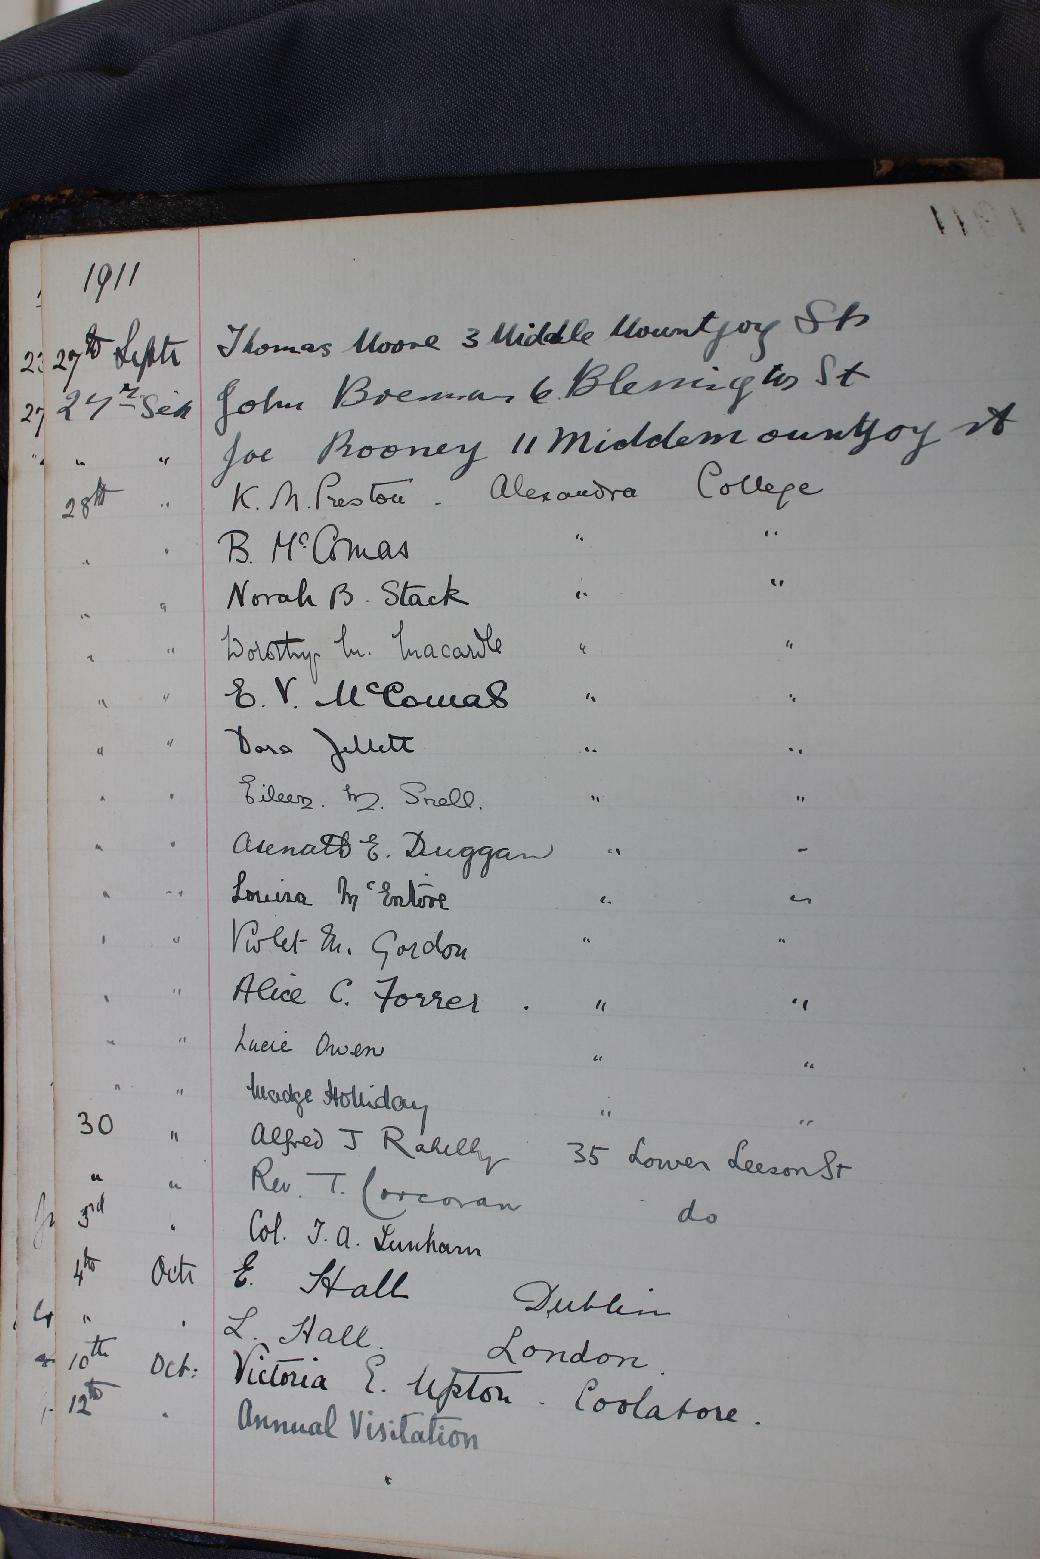 1911
27th Septr Thomas Moore 3 Middle Mountjoy St
27th John Brennan 6 Blessington St
" " Joe Rooney 11 Middlemountjoy st
28th " K. M. Preston . Alexandra College
" " B. McComas " "
" " Norah B. Stack " "
" " Dorothy M. Macardle " "
" " E. V. McComas " "
" " Dora Jellett " "
" " Eileen M. Snell. " "
" " Asenath E. Duggan " "
" " Louisa McEntire " "
" " Violet M. Gordon " "
" " Alice C. Forrer . " "
" " Lucie Owen " "
" " Madge Holliday " "
30 " Alfred J Rahelly 35 Lower Leeson St
" " Rev. T. Corcoran do
3rd " Col. T. A. Lunham
4th Octr E. Hall Dublin
" " L. Hall. London.
10th Oct: Victoria E. Upton . Coolatore .
12th " Annual Visitation